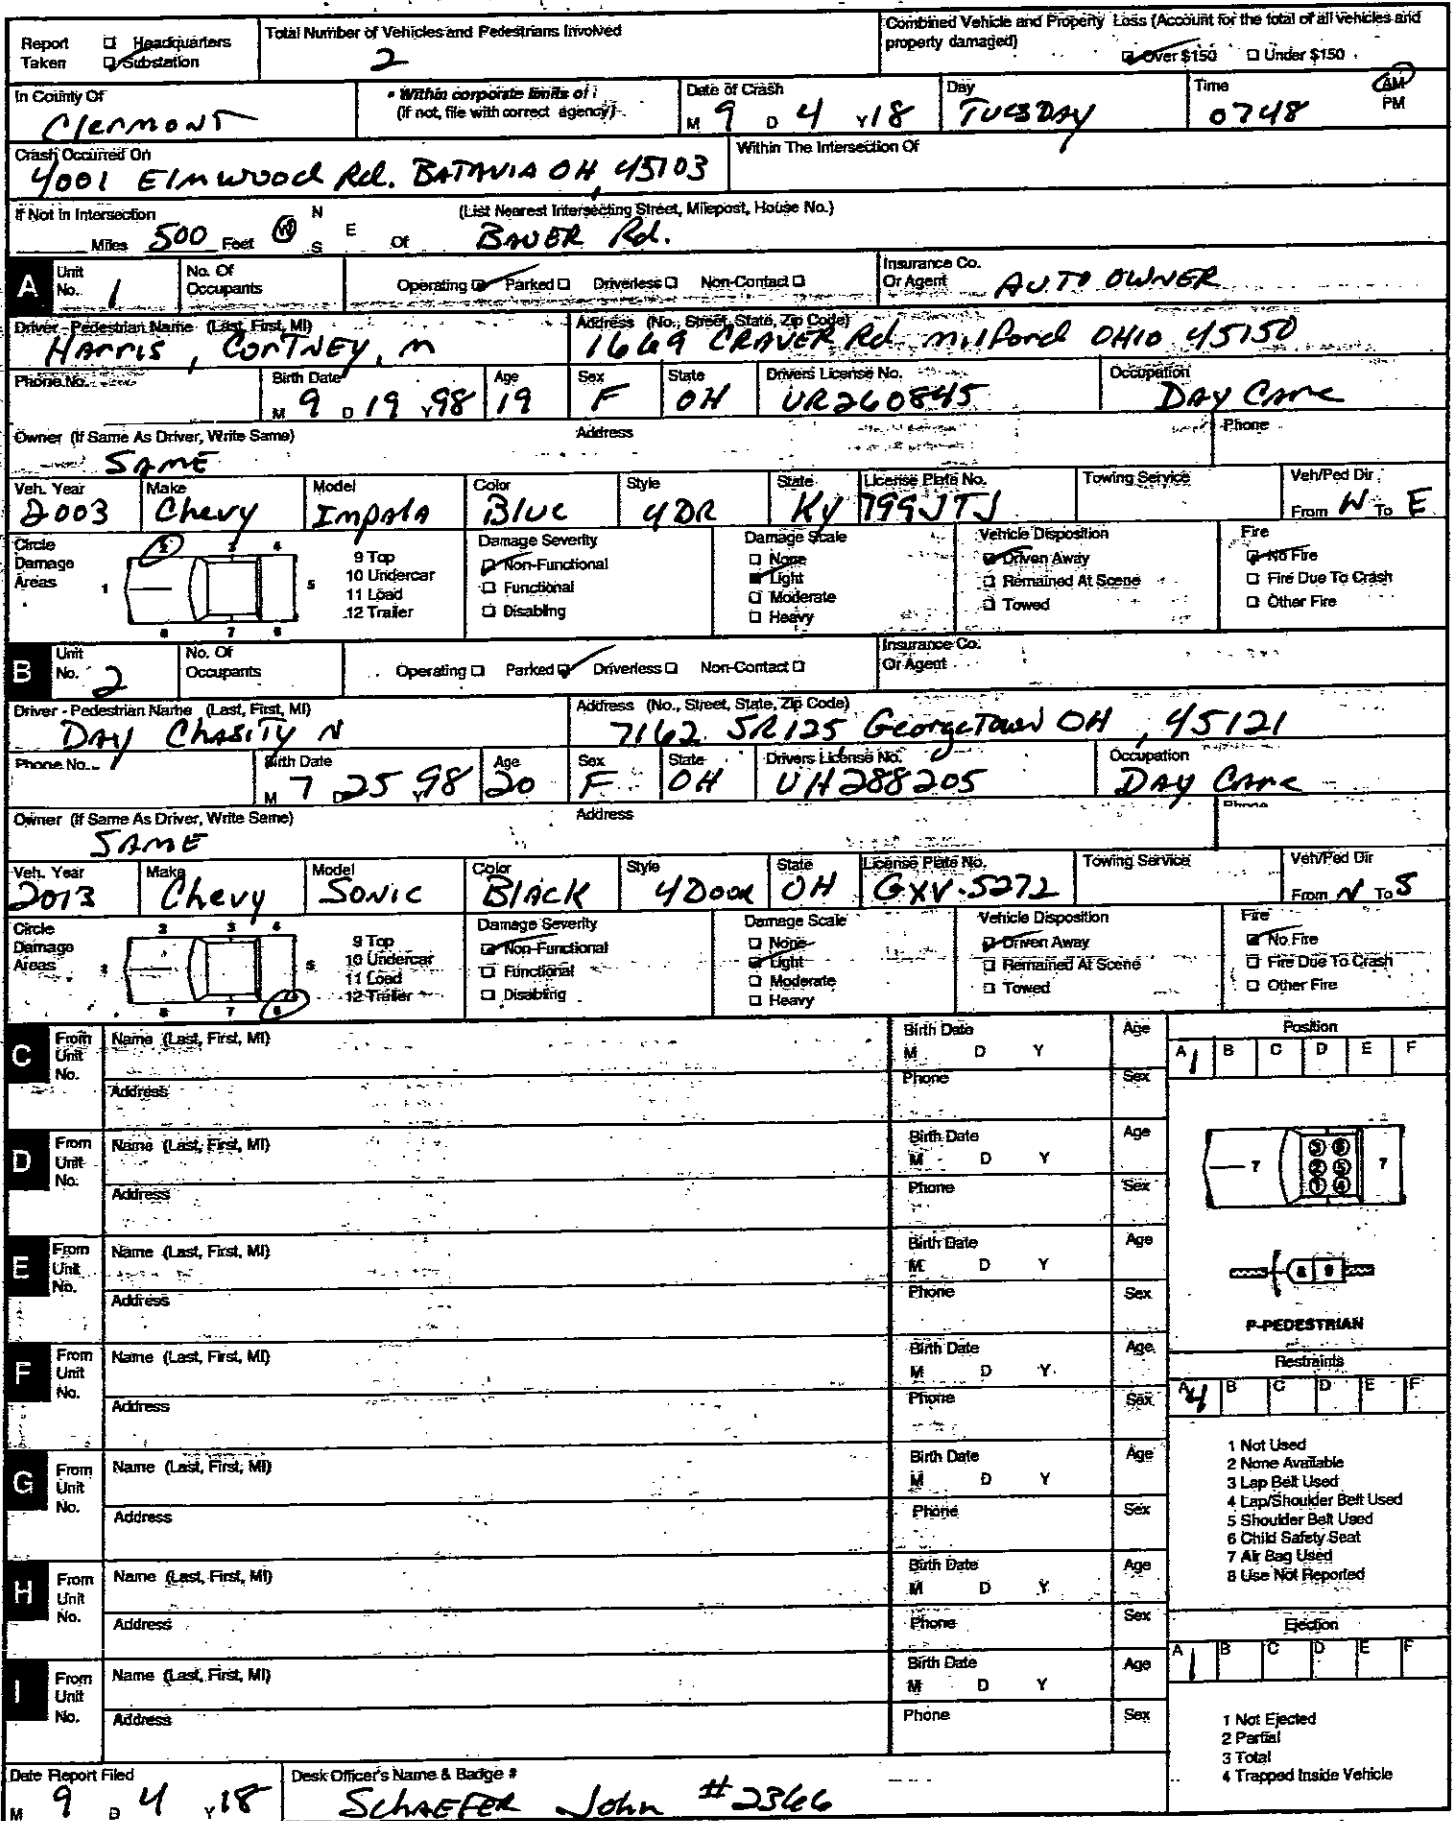 Report Taken ☐ Headquarters ☑ Substation
Total Number of Vehicles and Pedestrians Involved
2
Combined Vehicle and Property Loss (Account for the total of all vehicles and property damaged)
☑ Over $150 ☐ Under $150
In County Of
Clermont
• Within corporate limits of
(if not, file with correct agency)
Date of Crash
M 9 D 4 Y 18
Day
TUESDAY
Time
0748
AM
PM
Crash Occurred On
4001 Elmwood Rd. BATAVIA OH, 45103
Within The Intersection Of
If Not in Intersection
Miles 500 Feet W N S E Of
(List Nearest Intersecting Street, Milepost, House No.)
BAUER Rd.
A Unit No. 1
No. Of Occupants
Operating ☑ Parked ☐ Driverless ☐ Non-Contact ☐
Insurance Co. Or Agent AUTO OWNER
Driver - Pedestrian Name (Last, First, MI)
HARRIS, CORTNEY, M
Address (No., Street, State, Zip Code)
1669 CRAVER Rd Milford OHIO 45150
Phone No.
Birth Date
M 9 D 19 Y 98
Age
19
Sex
F
State
OH
Drivers License No.
UR260845
Occupation
DAY CARE
Owner (If Same As Driver, Write Same)
SAME
Address
Phone
Veh. Year
2003
Make
Chevy
Model
Impala
Color
Blue
Style
4DR
State
Ky
License Plate No.
799JTJ
Towing Service
Veh/Ped Dir
From W To E
Circle Damage Areas
1 2 3 4 5 6 7 8
9 Top
10 Undercar
11 Load
12 Trailer
Damage Severity
☑ Non-Functional
☐ Functional
☐ Disabling
Damage Scale
☐ None
☑ Light
☐ Moderate
☐ Heavy
Vehicle Disposition
☑ Driven Away
☐ Remained At Scene
☐ Towed
Fire
☑ No Fire
☐ Fire Due To Crash
☐ Other Fire
B Unit No. 2
No. Of Occupants
Operating ☐ Parked ☑ Driverless ☐ Non-Contact ☐
Insurance Co. Or Agent
Driver - Pedestrian Name (Last, First, MI)
DAY CHASITY N
Address (No., Street, State, Zip Code)
7162 SR125 Georgetown OH, 45121
Phone No.
Birth Date
M 7 D 25 Y 98
Age
20
Sex
F
State
OH
Drivers License No.
UH288205
Occupation
DAY CARE
Owner (If Same As Driver, Write Same)
SAME
Address
Phone
Veh. Year
2013
Make
Chevy
Model
SONIC
Color
BLACK
Style
4Door
State
OH
License Plate No.
GXV-5272
Towing Service
Veh/Ped Dir
From N To S
Circle Damage Areas
2 3 4 5 6 7 8
9 Top
10 Undercar
11 Load
12 Trailer
Damage Severity
☑ Non-Functional
☐ Functional
☐ Disabling
Damage Scale
☐ None
☑ Light
☐ Moderate
☐ Heavy
Vehicle Disposition
☑ Driven Away
☐ Remained At Scene
☐ Towed
Fire
☑ No Fire
☐ Fire Due To Crash
☐ Other Fire
C From Unit No.
Name (Last, First, MI)
Birth Date
M D Y
Age
Address
Phone
Sex
Position
A 1 B C D E F
D From Unit No.
Name (Last, First, MI)
Birth Date
M D Y
Age
Address
Phone
Sex
7 3 6 2 5 1 4 7
E From Unit No.
Name (Last, First, MI)
Birth Date
M D Y
Age
Address
Phone
Sex
8 9
P-PEDESTRIAN
F From Unit No.
Name (Last, First, MI)
Birth Date
M D Y
Age
Address
Phone
Sex
Restraints
A 4 B C D E F
1 Not Used
2 None Available
3 Lap Belt Used
4 Lap/Shoulder Belt Used
5 Shoulder Belt Used
6 Child Safety Seat
7 Air Bag Used
8 Use Not Reported
G From Unit No.
Name (Last, First, MI)
Birth Date
M D Y
Age
Address
Phone
Sex
H From Unit No.
Name (Last, First, MI)
Birth Date
M D Y
Age
Address
Phone
Sex
Ejection
A 1 B C D E F
1 Not Ejected
2 Partial
3 Total
4 Trapped Inside Vehicle
I From Unit No.
Name (Last, First, MI)
Birth Date
M D Y
Age
Address
Phone
Sex
Date Report Filed
M 9 D 4 Y 18
Desk Officer's Name & Badge #
SCHAEFER John #2366